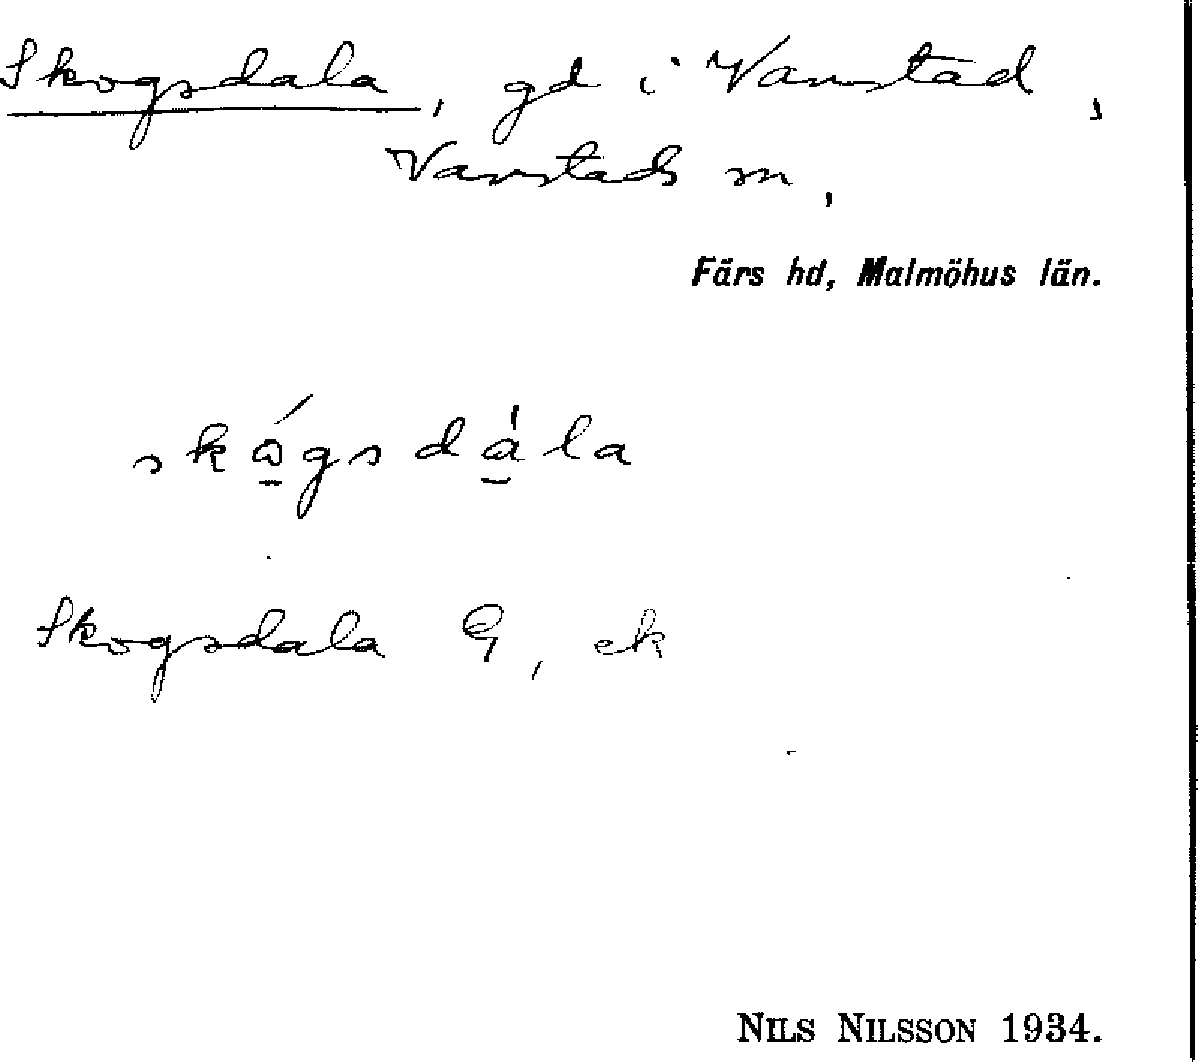 Skogsdala, gd i Vanstad,
Vanstads sn,
Färs hd, Malmöhus län.
skógsdála
Skogsdala G, ek
NILS NILSSON 1934.